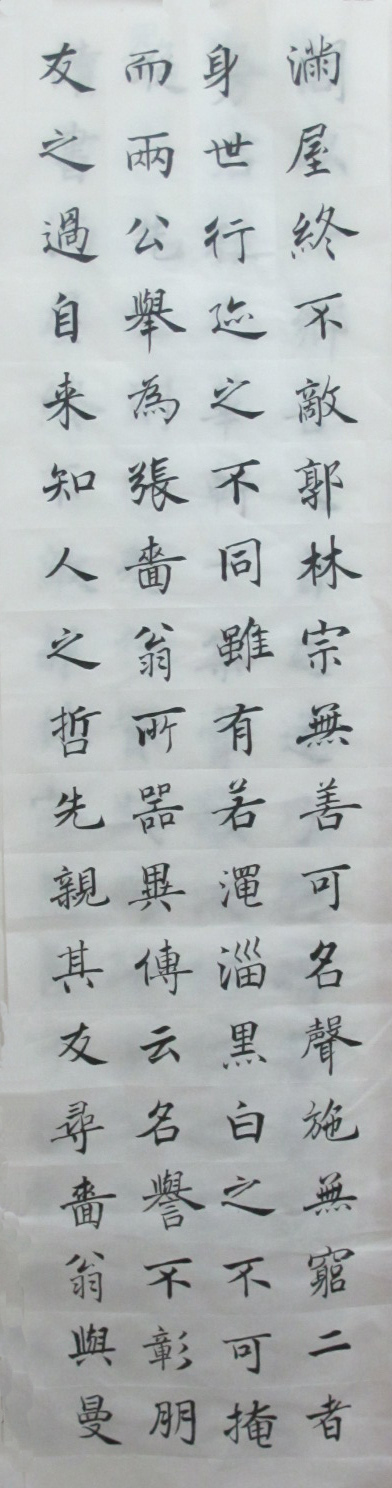 滿屋終不敵郭林宗無善可名聲施無窮二者
身世行迹之不同雖有若澠淄黑白之不可掩
而兩公舉為張嗇翁所器異傳云名譽不彰朋
友之過自来知人之哲先親其友尋嗇翁與曼